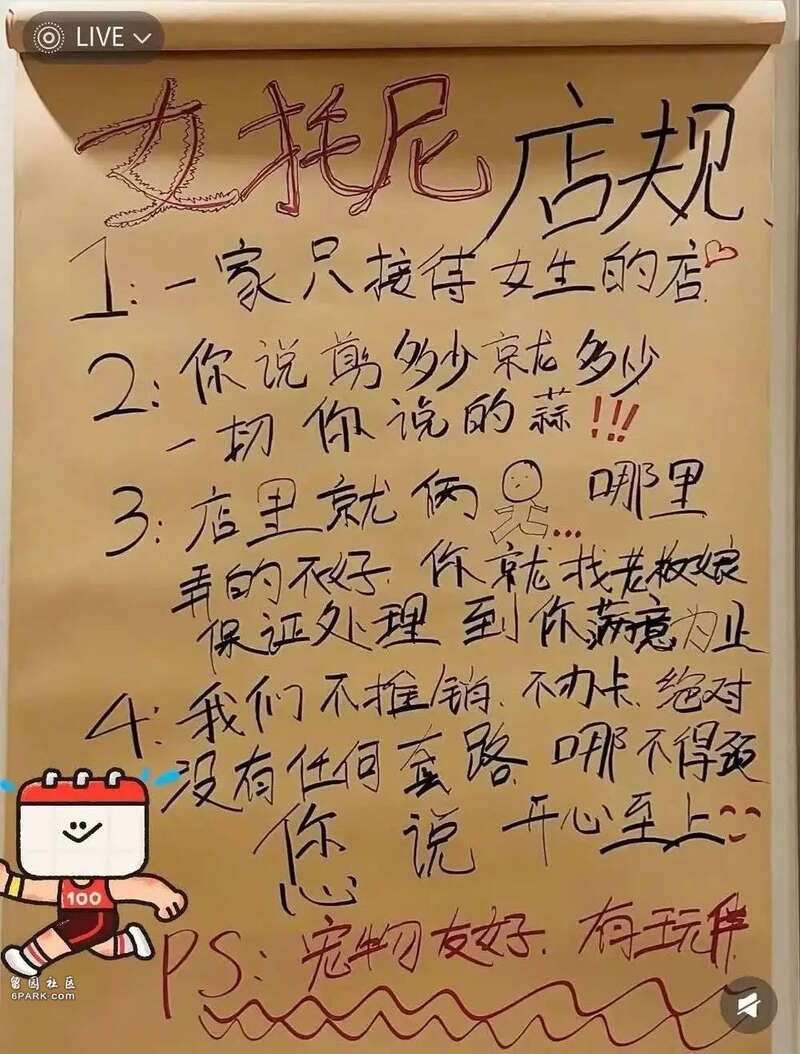 LIVE
女托尼 店规
1:一家只接待女生的店
2:你说剪多少就多少
一切你说的蒜!!!
3:店里就俩 ... 哪里
弄的不好.你就找老板娘
保证处理到你满意为止
4:我们不推销.不办卡.绝对
没有任何套路.哪不得
您说 开心至上
PS:宠物友好.有玩伴
100
留园社区
6PARK.com